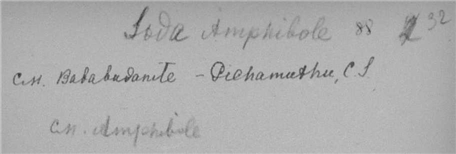 Soda Amphibole 88 32
C.N. Bababudanite - Pichamuthu, C S.
C.N. Amphibole